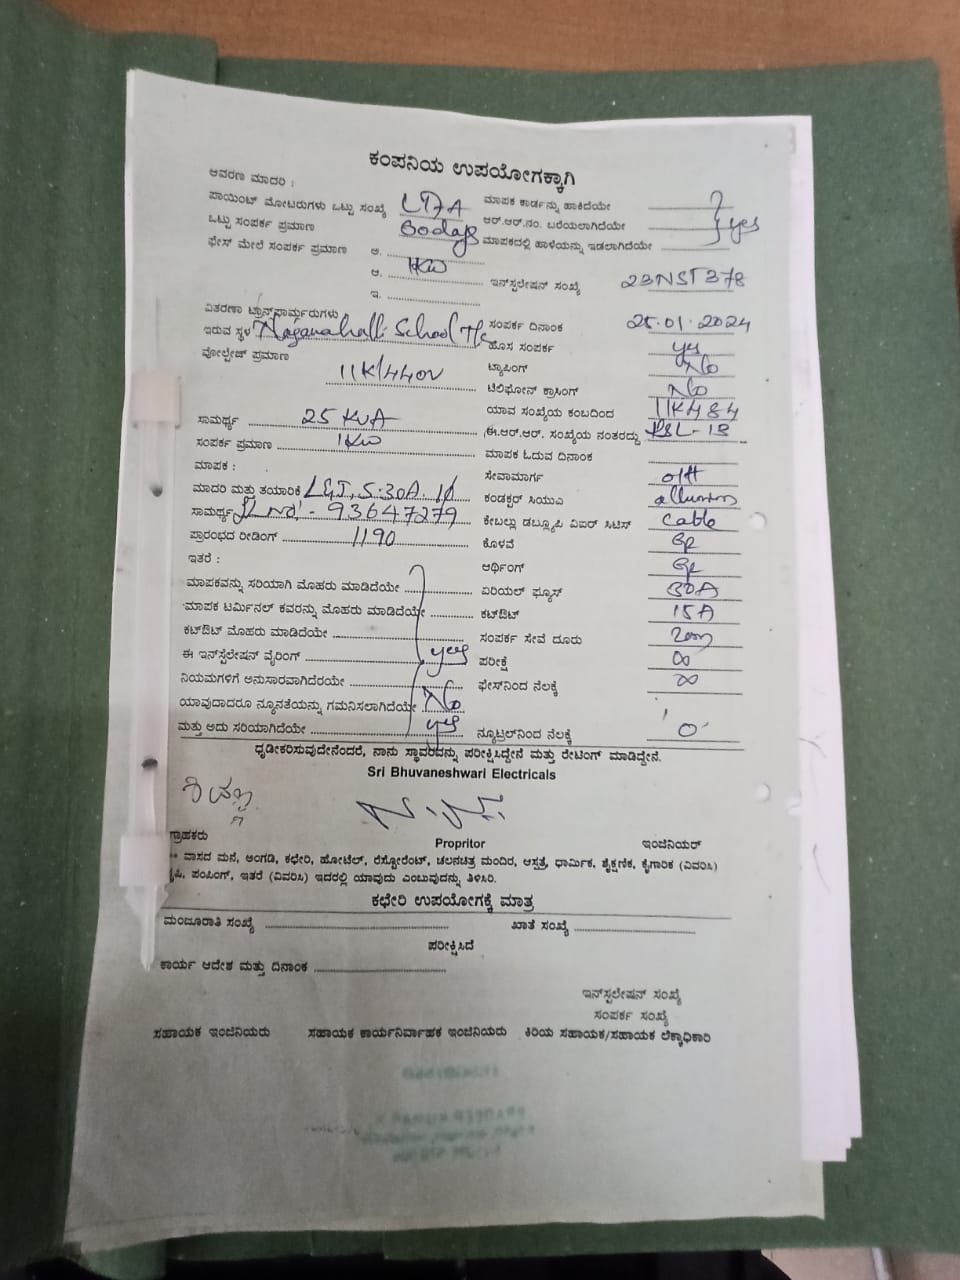 ಕಂಪನಿಯ ಉಪಯೋಗಕ್ಕಾಗಿ
ಆವರಣ ಮಾದರಿ :
ಪಾಯಿಂಟ್ ಮೋಟರುಗಳು ಒಟ್ಟು ಸಂಖ್ಯೆ ಮಾಪಕ ಕಾರ್ಡನ್ನು ಹಾಕಿದೆಯೇ
ಒಟ್ಟು ಸಂಪರ್ಕ ಪ್ರಮಾಣ ಆರ್.ಆರ್.ನಂ. ಬರೆಯಲಾಗಿದೆಯೇ yes
ಫೇಸ್ ಮೇಲೆ ಸಂಪರ್ಕ ಪ್ರಮಾಣ ಅ. ಮಾಪಕದಲ್ಲಿ ಹಾಳೆಯನ್ನು ಇಡಲಾಗಿದೆಯೇ
ಆ. 1KW ಇನ್ಸ್ಟಲೇಷನ್ ಸಂಖ್ಯೆ 23NST378
ಇ.
ವಿತರಣಾ ಟ್ರಾನ್ಸ್‌ಫಾರ್ಮರುಗಳು ಸಂಪರ್ಕ ದಿನಾಂಕ 25.01.2024
ಇರುವ ಸ್ಥಳ Naganahalli School ಹೊಸ ಸಂಪರ್ಕ yes
ವೋಲ್ಟೇಜ್ ಪ್ರಮಾಣ ಟ್ಯಾಪಿಂಗ್ No
11K/440V ಟೆಲಿಫೋನ್ ಕ್ರಾಸಿಂಗ್ No
ಯಾವ ಸಂಖ್ಯೆಯ ಕಂಬದಿಂದ 11K484
ಸಾಮರ್ಥ್ಯ 25 KVA ಈ.ಆರ್.ಆರ್. ಸಂಖ್ಯೆಯ ನಂತರದ್ದು
ಸಂಪರ್ಕ ಪ್ರಮಾಣ 1KW ಮಾಪಕ ಓದುವ ದಿನಾಂಕ
ಮಾಪಕ : ಸೇವಾಮಾರ್ಗ o/H
ಮಾದರಿ ಮತ್ತು ತಯಾರಿಕೆ L&T, 5-30A. ಕಂಡಕ್ಟರ್ ಸಿಯುವಿ
ಸಾಮರ್ಥ್ಯ Sl no! - 93647279 ಕೇಬಲ್ಲು ಡಬ್ಲ್ಯೂಪಿ ವಿಐರ್ ಸಿಟಿಸ್ cable
ಪ್ರಾರಂಭದ ರೀಡಿಂಗ್ 1190 ಕೊಳವೆ
ಇತರೆ : ಆರ್ಥಿಂಗ್
ಮಾಪಕವನ್ನು ಸರಿಯಾಗಿ ಮೊಹರು ಮಾಡಿದೆಯೇ ಏರಿಯಲ್ ಫ್ಯೂಸ್ 30A
ಮಾಪಕ ಟರ್ಮಿನಲ್ ಕವರನ್ನು ಮೊಹರು ಮಾಡಿದೆಯೇ ಕಟ್‌ಔಟ್ 15A
ಕಟ್‌ಔಟ್ ಮೊಹರು ಮಾಡಿದೆಯೇ ಸಂಪರ್ಕ ಸೇವೆ ದೂರು
ಈ ಇನ್‌ಸ್ಟೆಲೇಷನ್ ವೈರಿಂಗ್ yes ಪರೀಕ್ಷೆ ∞
ನಿಯಮಗಳಿಗೆ ಅನುಸಾರವಾಗಿದೆರಯೇ ಫೇಸ್‌ನಿಂದ ನೆಲಕ್ಕೆ ∞
ಯಾವುದಾದರೂ ನ್ಯೂನತೆಯನ್ನು ಗಮನಿಸಲಾಗಿದೆಯೇ No
ಮತ್ತು ಅದು ಸರಿಯಾಗಿದೆಯೇ yes ನ್ಯೂಟ್ರಲ್‌ನಿಂದ ನೆಲಕ್ಕೆ 'O'
ಧೃಡೀಕರಿಸುವುದೇನೆಂದರೆ, ನಾನು ಸ್ಥಾವರವನ್ನು ಪರೀಕ್ಷಿಸಿದ್ದೇನೆ ಮತ್ತು ರೇಟಿಂಗ್ ಮಾಡಿದ್ದೇನೆ.
Sri Bhuvaneshwari Electricals
ಗ್ರಾಹಕರು Propritor ಇಂಜಿನಿಯರ್
** ವಾಸದ ಮನೆ, ಅಂಗಡಿ, ಕಛೇರಿ, ಹೋಟೆಲ್, ರೆಸ್ಟೋರೆಂಟ್, ಚಲನಚಿತ್ರ ಮಂದಿರ, ಆಸ್ಪತ್ರೆ, ಧಾರ್ಮಿಕ, ಶೈಕ್ಷಣಿಕ, ಕೈಗಾರಿಕ (ವಿವರಿಸಿ)
ಪಂಪಿಂಗ್, ಇತರೆ (ವಿವರಿಸಿ) ಇದರಲ್ಲಿ ಯಾವುದು ಎಂಬುವುದನ್ನು ತಿಳಿಸಿರಿ.
ಕಛೇರಿ ಉಪಯೋಗಕ್ಕೆ ಮಾತ್ರ
ಮಂಜೂರಾತಿ ಸಂಖ್ಯೆ ಖಾತೆ ಸಂಖ್ಯೆ
ಪರೀಕ್ಷಿಸಿದೆ
ಕಾರ್ಯ ಆದೇಶ ಮತ್ತು ದಿನಾಂಕ
ಇನ್‌ಸ್ಟಲೇಷನ್ ಸಂಖ್ಯೆ
ಸಂಪರ್ಕ ಸಂಖ್ಯೆ
ಸಹಾಯಕ ಇಂಜಿನಿಯರು ಸಹಾಯಕ ಕಾರ್ಯನಿರ್ವಾಹಕ ಇಂಜಿನಿಯರು ಕಿರಿಯ ಸಹಾಯಕ/ಸಹಾಯಕ ಲೆಕ್ಕಾಧಿಕಾರಿ